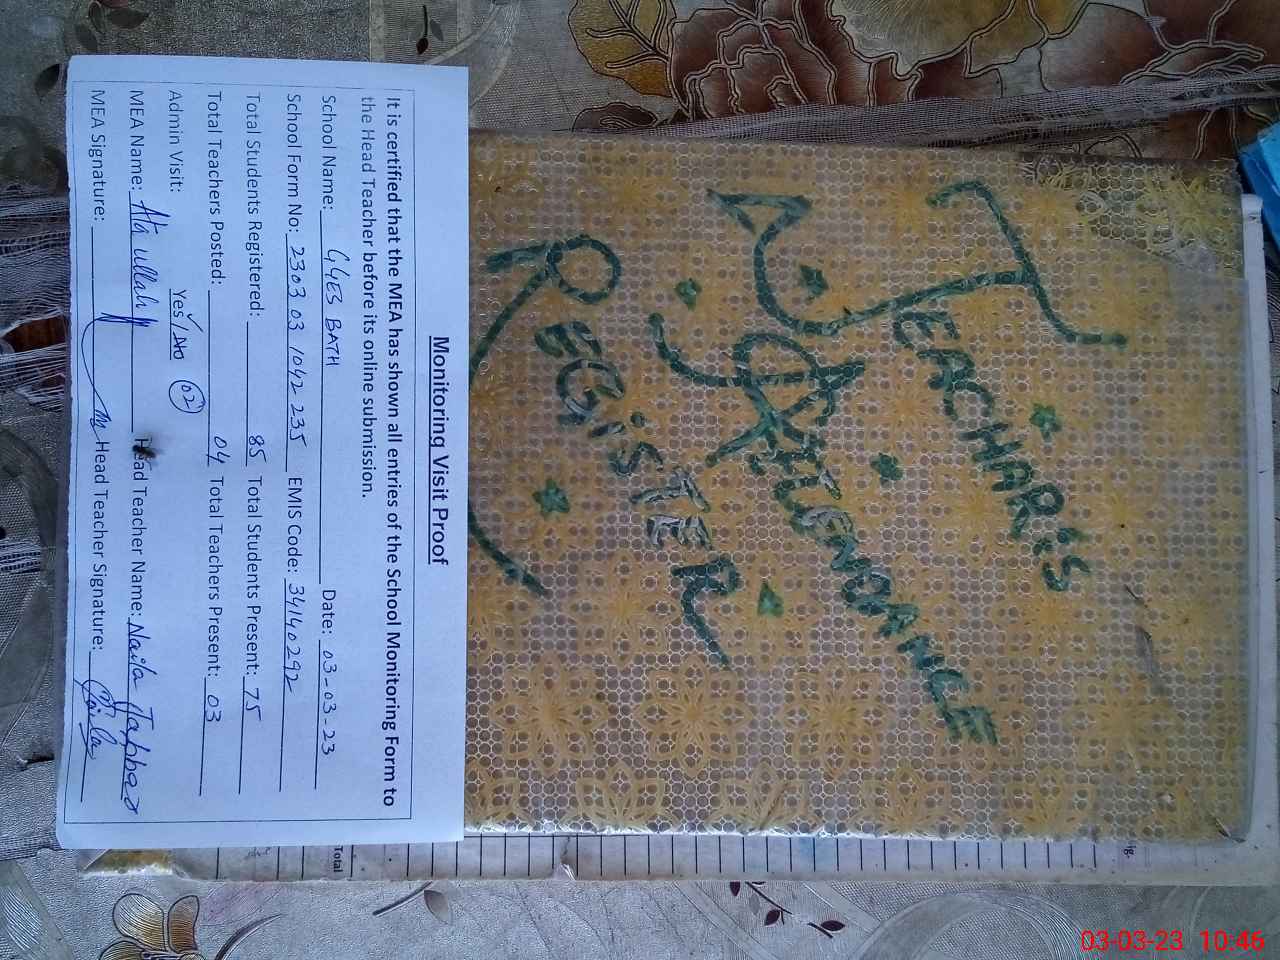 TEACHAR'S
ATTENDANCE
REGiSTER
Monitoring Visit Proof
It is certified that the MEA has shown all entries of the School Monitoring Form to
the Head Teacher before its online submission.
School Name: GGES BATH Date: 03-03-23
School Form No: 2303 03 1042 235 EMIS Code: 34140292
Total Students Registered: 85 Total Students Present: 75
Total Teachers Posted: 04 Total Teachers Present: 03
Admin Visit: Yes/No 02
MEA Name: Ata ullah Head Teacher Name: Naila Jabbar
MEA Signature: Head Teacher Signature: Naila
Total
ig.
03-03-23 10:46